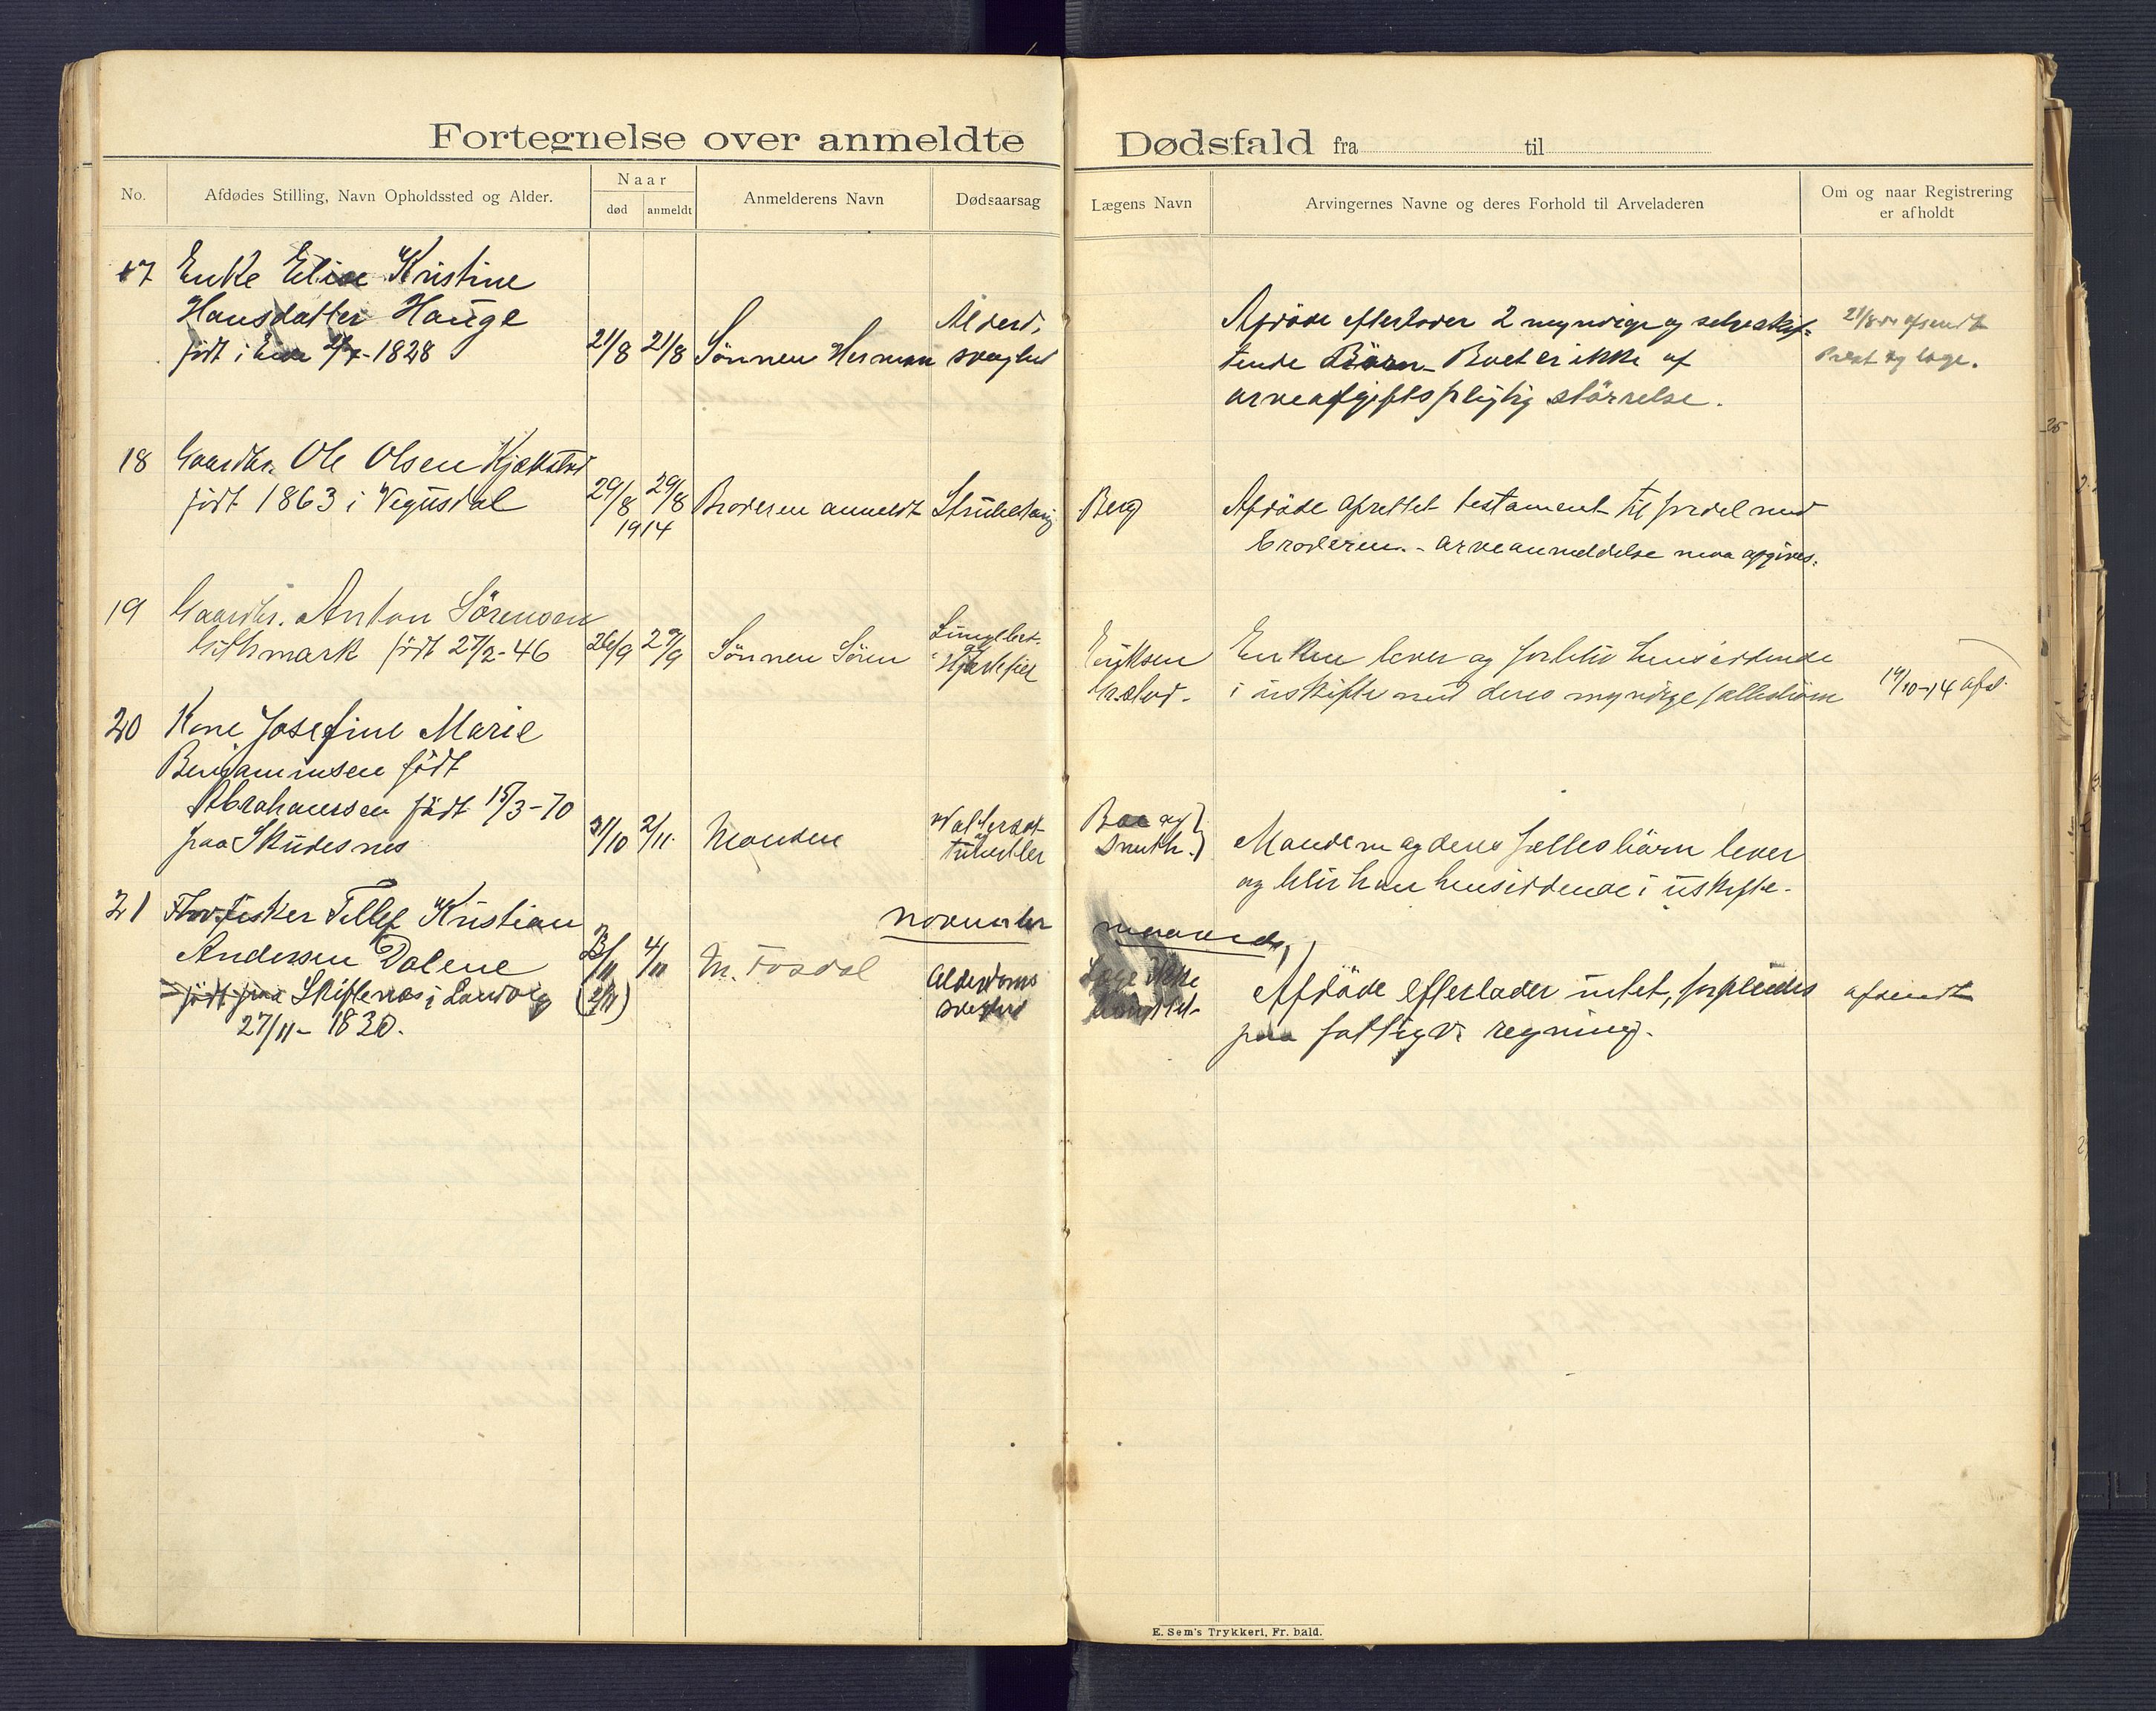 Fortegnelse over anmeldte Dødsfald fra til
No.
Afdødes Stilling, Navn Opholdssted og Alder.
Naar
død
anmeldt
Anmelderens Navn
Dødsaarsag
Lægens Navn
Arvingernes Navne og deres Forhold til Arveladeren
Om og naar Registrering
er afholdt
17
Enke Elise Kristine
Hansdatter Hauge
født i Eide 1828
21/8
21/8
Sønnen Herman
Alderd.
svaghed
Afdøde efterlader 2 myndige og selvskif-
tende Börn - Boet er ikke af
arveafgiftspligtig störrelse.
21/8 afsendt
18
Gaardbr. Ole Olsen Kjækstad
född 1863 i Vegusdal
29/8
29/8
1914
Broderen anmeldt
Strubetæring
Berg
Afdøde oprettet testament til fordel med
broderen. - arveanmeldelse maa opgives.
19
Gaardbr. Anton Sörensen
Githmark född 27/2-46
26/9
29/9
Sönnen Sören
og
Hjertefeil
Enken lever og forbliv hensiddende
i uskifte med deres myndige fællesbörn
14/10-14 afs.
20
Kone Josefine Marie
Benjaminsen född
Abrahamsen född 15/3-70
paa Skudesnes
31/10
2/11
Manden
og
tuberkler
og
Smith.
Manden og deres fællesbörn lever
og blir han hensiddende i uskifte.
november maaned.
21
Fhv. Fisker Tellef Kristian
Andersen Dalene
född paa Skiftenes i Landvig
27/11 - 1830.
3/11
(2/11)
4/11
M. Fosdal
Alderdoms
svaghed
Læge ikke
Afdöde efterlader intet, forpleiedes
paa fattigv. regning.
afsendt
E. Sem's Trykkeri, Fr. hald.